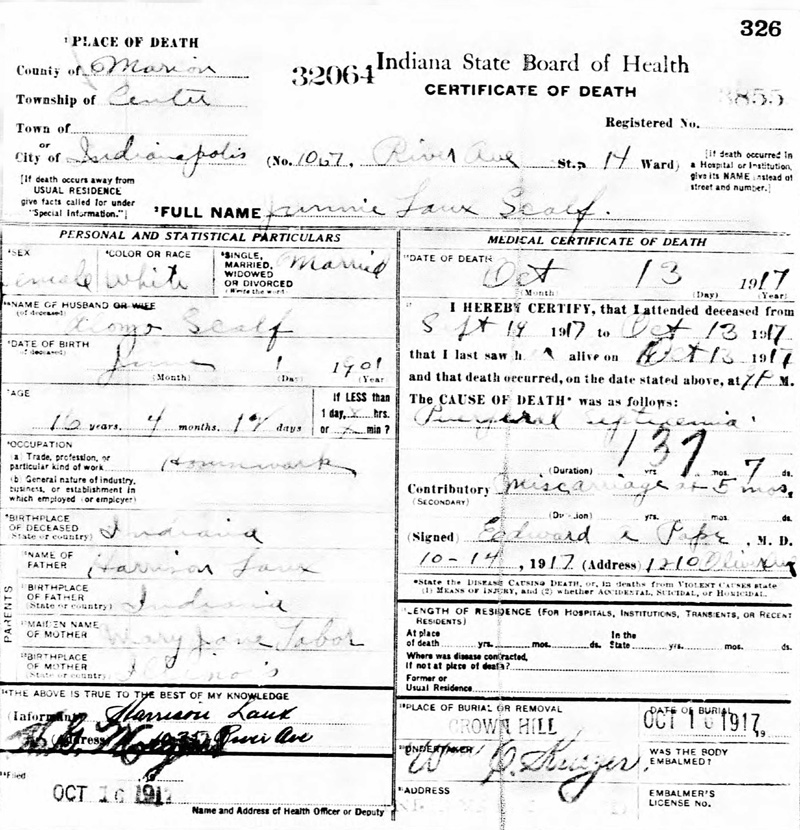 326
¹PLACE OF DEATH
County of Marion
Township of Center
Town of
or
City of Indianapolis
32064
Indiana State Board of Health
CERTIFICATE OF DEATH
3855
Registered No.
(No. 1067, River Ave St., 14 Ward)
[If death occurred in a Hospital or Institution, give its NAME instead of street and number.]
[If death occurs away from USUAL RESIDENCE give facts called for under "Special Information."]
²FULL NAME Laux Scalf.
PERSONAL AND STATISTICAL PARTICULARS
³SEX
Female
⁴COLOR OR RACE
White
⁵SINGLE, MARRIED, WIDOWED OR DIVORCED
(Write the word)
Married
NAME OF HUSBAND OR WIFE
(of deceased)
Alonzo Scalf
DATE OF BIRTH
(of deceased)
June 1 1901
(Month) (Day) (Year
AGE
16 years. 4 months. 12 days
If LESS than
1 day, hrs.
or min?
OCCUPATION
(a) Trade, profession, or particular kind of work
Housework
(b) General nature of industry, business, or establishment in which employed (or employer)
BIRTHPLACE OF DECEASED
(State or country)
Indiana
PARENTS
NAME OF FATHER
Harrison Laux
BIRTHPLACE OF FATHER
(State or country)
Indiana
MAIDEN NAME OF MOTHER
Mary Jane Tabor
BIRTHPLACE OF MOTHER
(State or country)
THE ABOVE IS TRUE TO THE BEST OF MY KNOWLEDGE
(Informant) Harrison Laux
(Address) River Ave
Filed
OCT 16 1917
Name and Address of Health Officer or Deputy
MEDICAL CERTIFICATE OF DEATH
DATE OF DEATH
Oct 13 1917
(Month) (Day) (Year)
I HEREBY CERTIFY, that I attended deceased from
Sept 19 1917 to Oct 13 1917
that I last saw h alive on Oct 13 1917
and that death occurred, on the date stated above, at M.
The CAUSE OF DEATH* was as follows:
Puerperal Septicemia
137
(Duration) yrs. mos. 7 ds.
Contributory Miscarriage at 5 mos.
(SECONDARY)
(Duration) yrs. mos. ds.
(Signed) Edward A Pape, M. D.
10-14, 1917 (Address) 1210 Oliver Ave
*State the DISEASE CAUSING DEATH, or, in deaths from VIOLENT CAUSES state
(1) MEANS OF INJURY, and (2) whether ACCIDENTAL, SUICIDAL, or HOMICIDAL.
LENGTH OF RESIDENCE (FOR HOSPITALS, INSTITUTIONS, TRANSIENTS, OR RECENT RESIDENTS)
At place of death yrs. mos. ds. In the State yrs. mos. ds.
Where was disease contracted,
If not at place of death?
Former or
Usual Residence
PLACE OF BURIAL OR REMOVAL
CROWN HILL
DATE OF BURIAL
OCT 16 1917
19
UNDERTAKER
WAS THE BODY EMBALMED?
ADDRESS
EMBALMER'S LICENSE No.